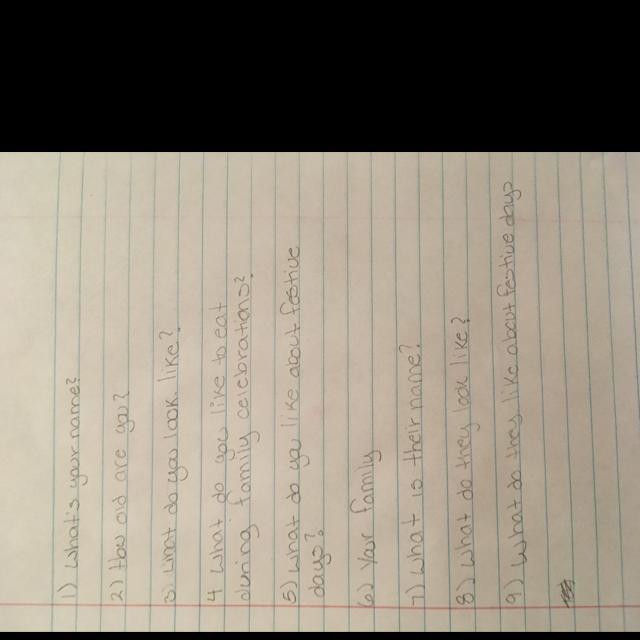 1) What's your name?
2) How old are you?
3 What do you look like?
4 What do you like to eat
during family celebrations?
5) What do you like about festive
days?
6) Your family
7) What is their name?
8) What do they look like?
9) What do they like about festive days